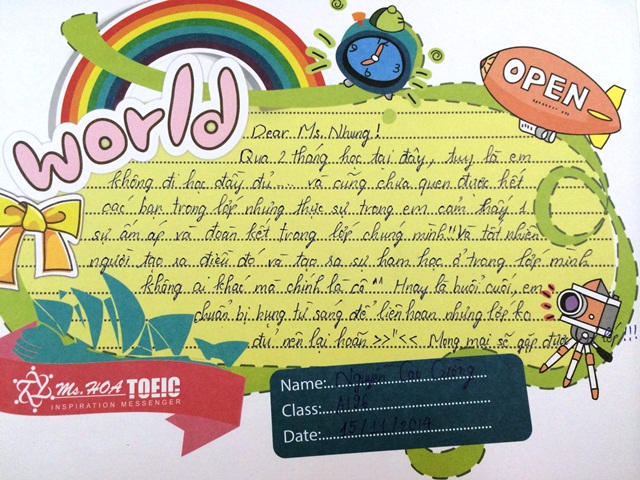 world
OPEN
Dear Ms. Nhung!
Qua 2 tháng học tại đây, tuy là em
không đi học đầy đủ ... và cũng chưa quen được hết
các bạn trong lớp nhưng thực sự trong em cảm thấy 1
sự ấm áp và đoàn kết trong lớp chúng mình" Và tất nhiên
người tạo ra điều đó và tạo ra sự ham học ở trong lớp mình
không ai khác mà chính là cô ^^ Hnay là buổi cuối, em
chuẩn bị bụng từ sáng để liên hoan nhưng lớp ko
đủ nên lại hoãn >>"<< Mong mai sẽ gặp được lớp!!!
Ms. HOA TOEIC
INSPIRATION MESSENGER
Name: Nguyễn Cao Cường
Class: A196
Date: 15/11/2014